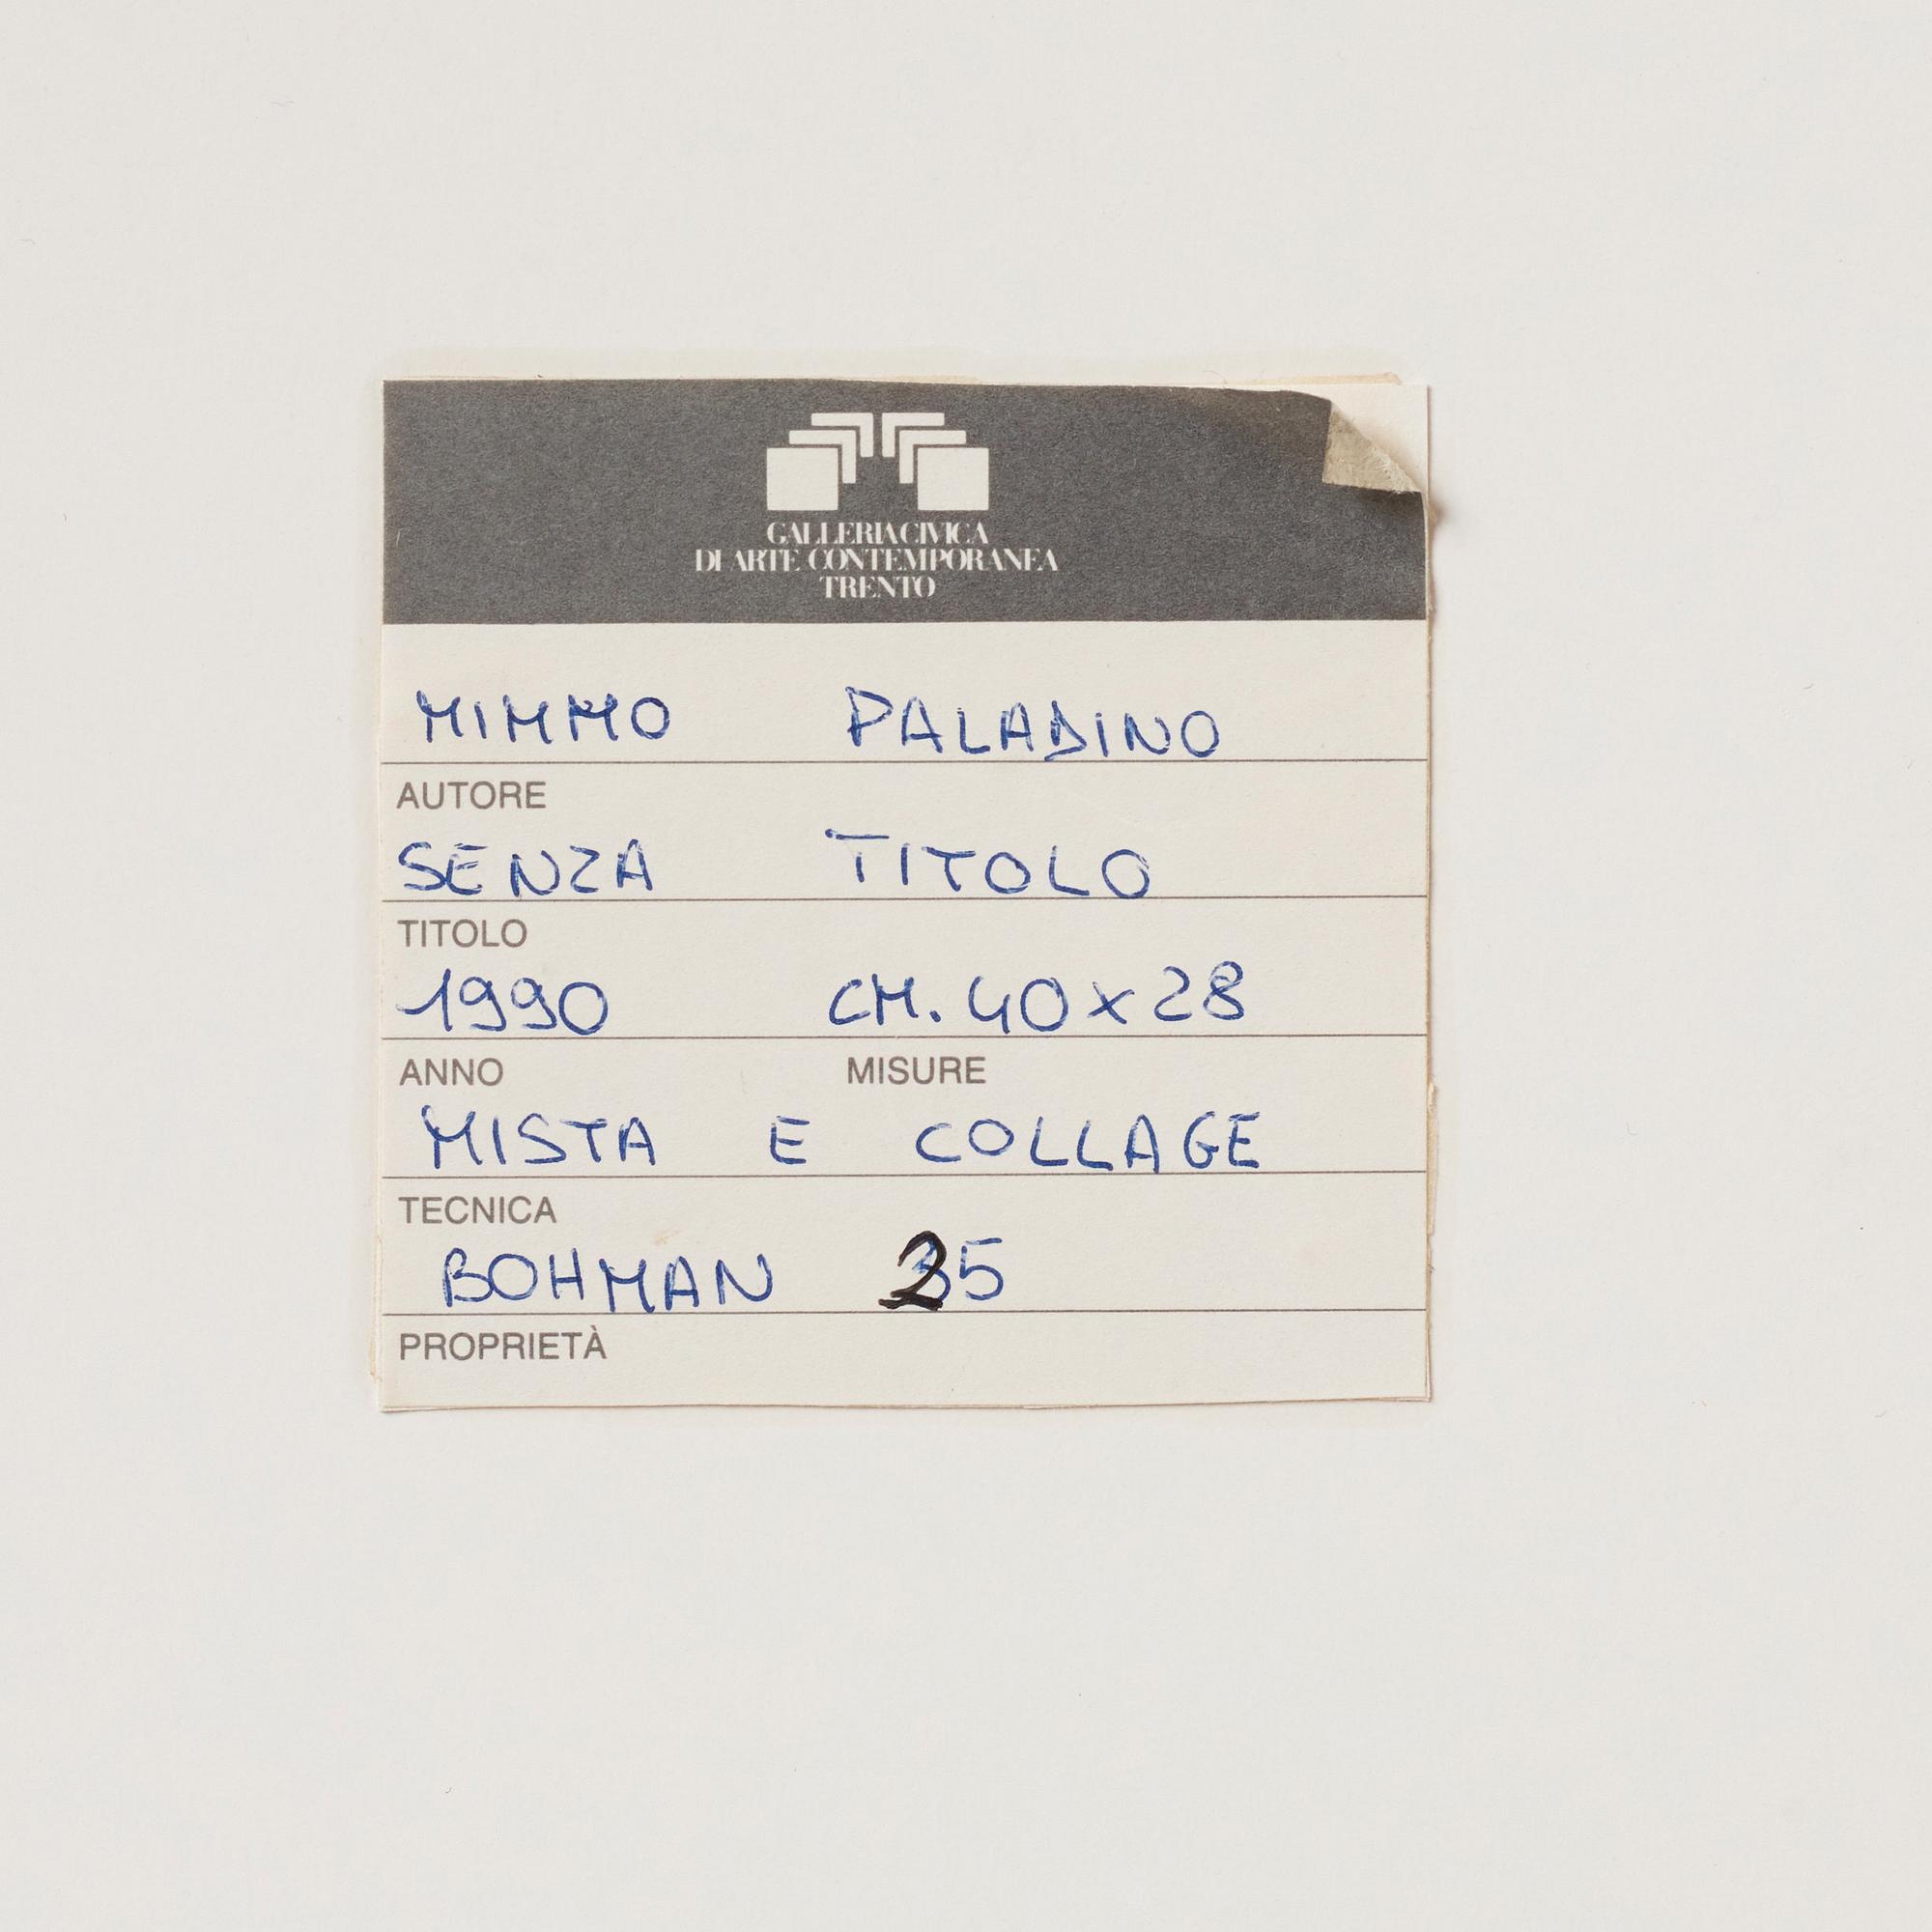 GALLERIA CIVICA
DI ARTE CONTEMPORANEA
TRENTO
MIMMO PALADINO
AUTORE
SENZA TITOLO
TITOLO
1990 CM. 40x28
ANNO MISURE
MISTA E COLLAGE
TECNICA
BOHMAN 25
PROPRIETÀ